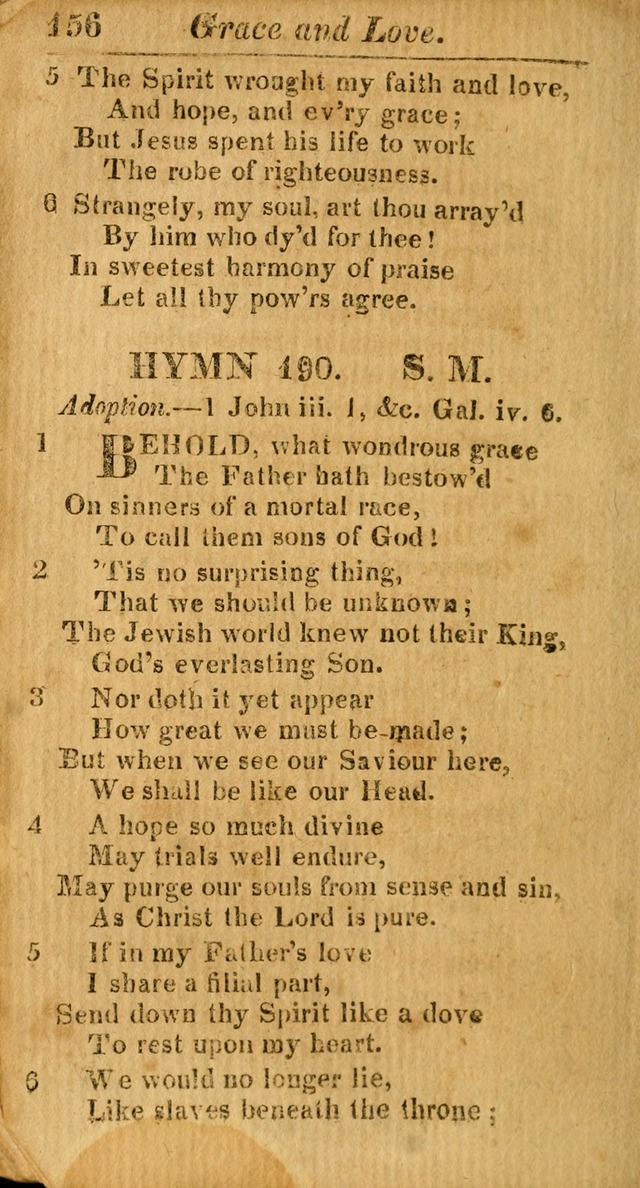 156 Grace and Love.
5 The Spirit wrought my faith and love,
And hope, and ev'ry grace;
But Jesus spent his life to work
The robe of righteousness.
6 Strangely, my soul, art thou array'd
By him who dy'd for thee!
In sweetest harmony of praise
Let all thy pow'rs agree.
HYMN 190. S. M.
Adoption.—1 John iii. 1, &c. Gal. iv. 6.
1 BEHOLD, what wondrous grace
The Father hath bestow'd
On sinners of a mortal race,
To call them sons of God!
2 'Tis no surprising thing,
That we should be unknown;
The Jewish world knew not their King,
God's everlasting Son.
3 Nor doth it yet appear
How great we must be made;
But when we see our Saviour here,
We shall be like our Head.
4 A hope so much divine
May trials well endure,
May purge our souls from sense and sin,
As Christ the Lord is pure.
5 If in my Father's love
I share a filial part,
Send down thy Spirit like a dove
To rest upon my heart.
6 We would no longer lie,
Like slaves beneath the throne;